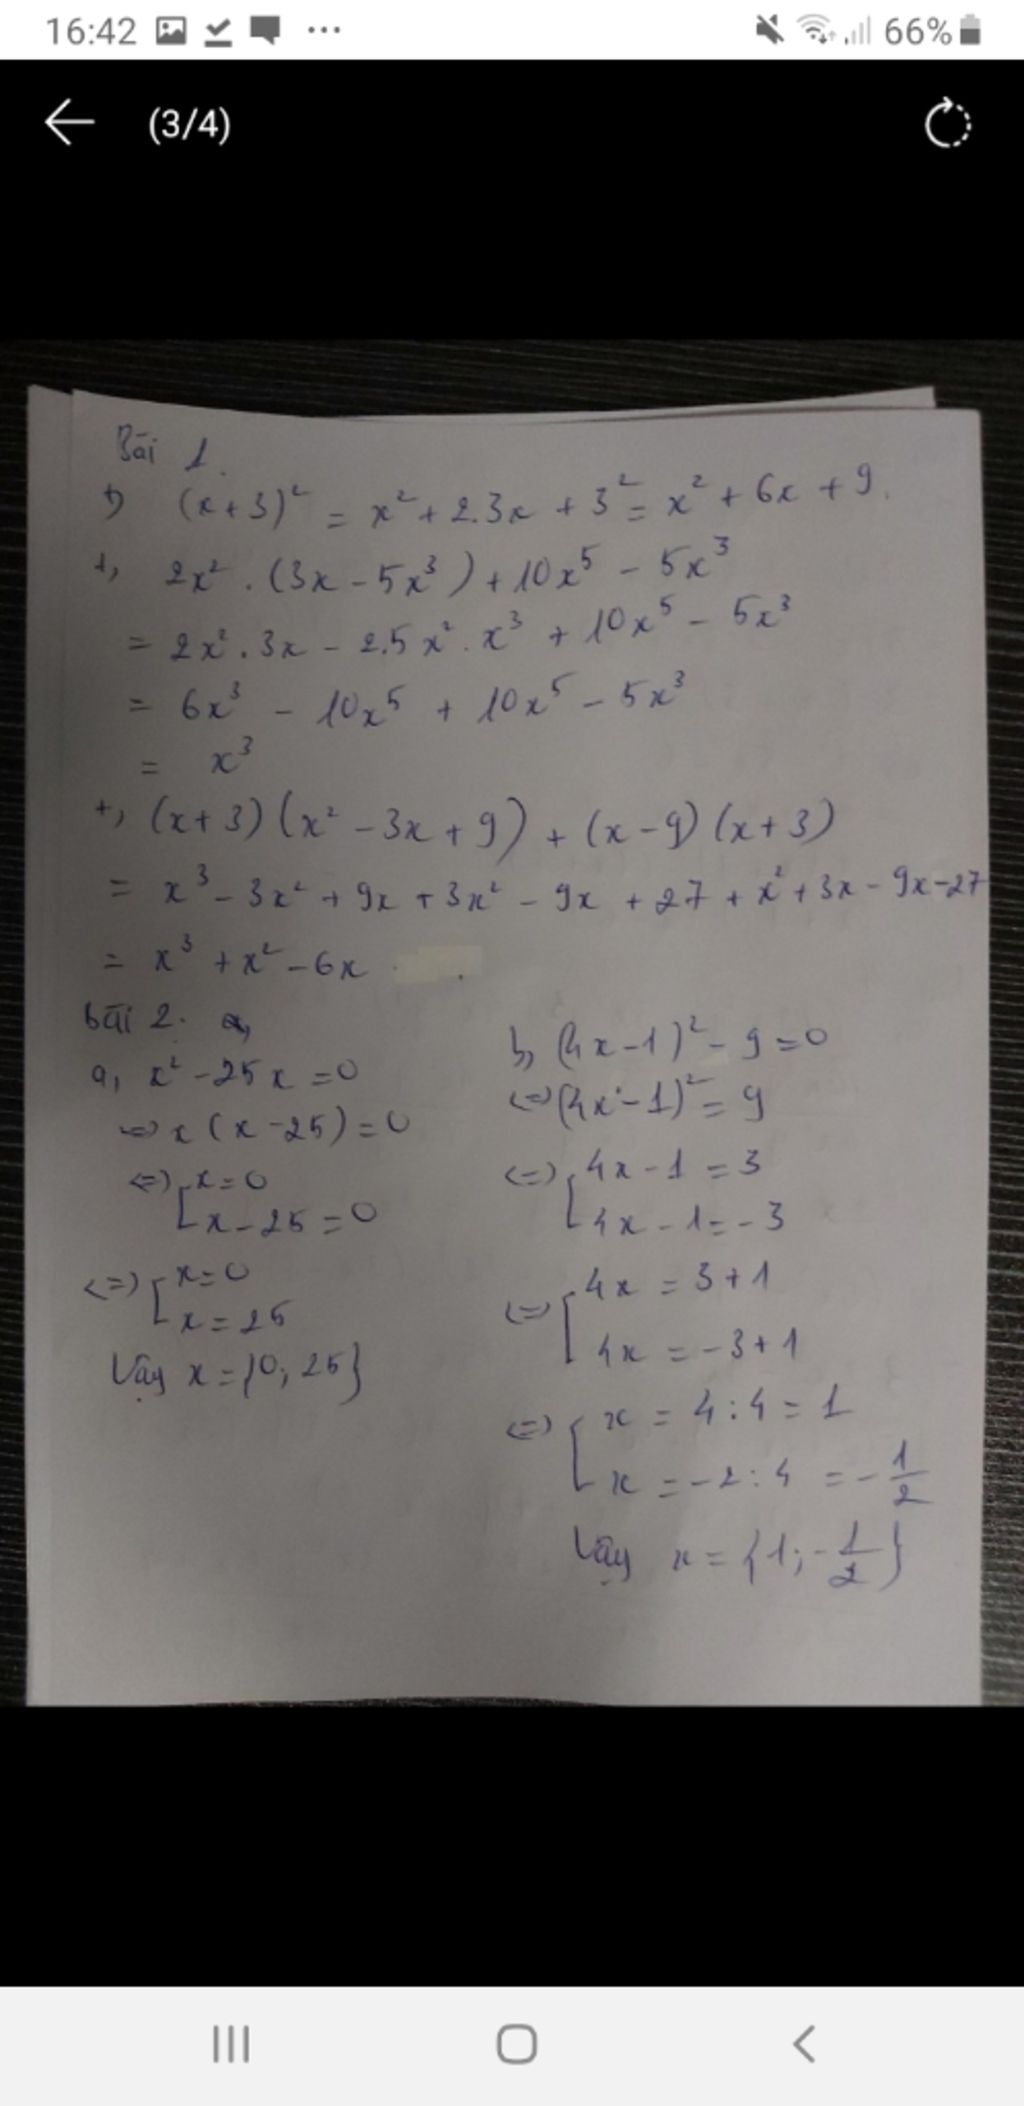 16:42 ... 66%
(3/4)
Bài 1.
+) (x+3)² = x² + 2.3x + 3² = x² + 6x + 9.
+, 2x² . (3x - 5x³) + 10x⁵ - 5x³
= 2x² . 3x - 2.5x² . x³ + 10x⁵ - 5x³
= 6x³ - 10x⁵ + 10x⁵ - 5x³
= x³
+, (x+3)(x² - 3x + 9) + (x - 9)(x+3)
= x³ - 3x² + 9x + 3x² - 9x + 27 + x² + 3x - 9x - 27
= x³ + x² - 6x
bài 2.
a, x² - 25x = 0
⇔ x(x - 25) = 0
⇔ [ x = 0
x - 25 = 0
⇔ [ x = 0
x = 25
Vậy x = {0; 25}
b, (4x - 1)² - 9 = 0
⇔ (4x - 1)² = 9
⇔ [ 4x - 1 = 3
4x - 1 = -3
⇔ [ 4x = 3 + 1
4x = -3 + 1
⇔ [ x = 4 : 4 = 1
x = -2 : 4 = -1/2
Vậy x = {1; -1/2}